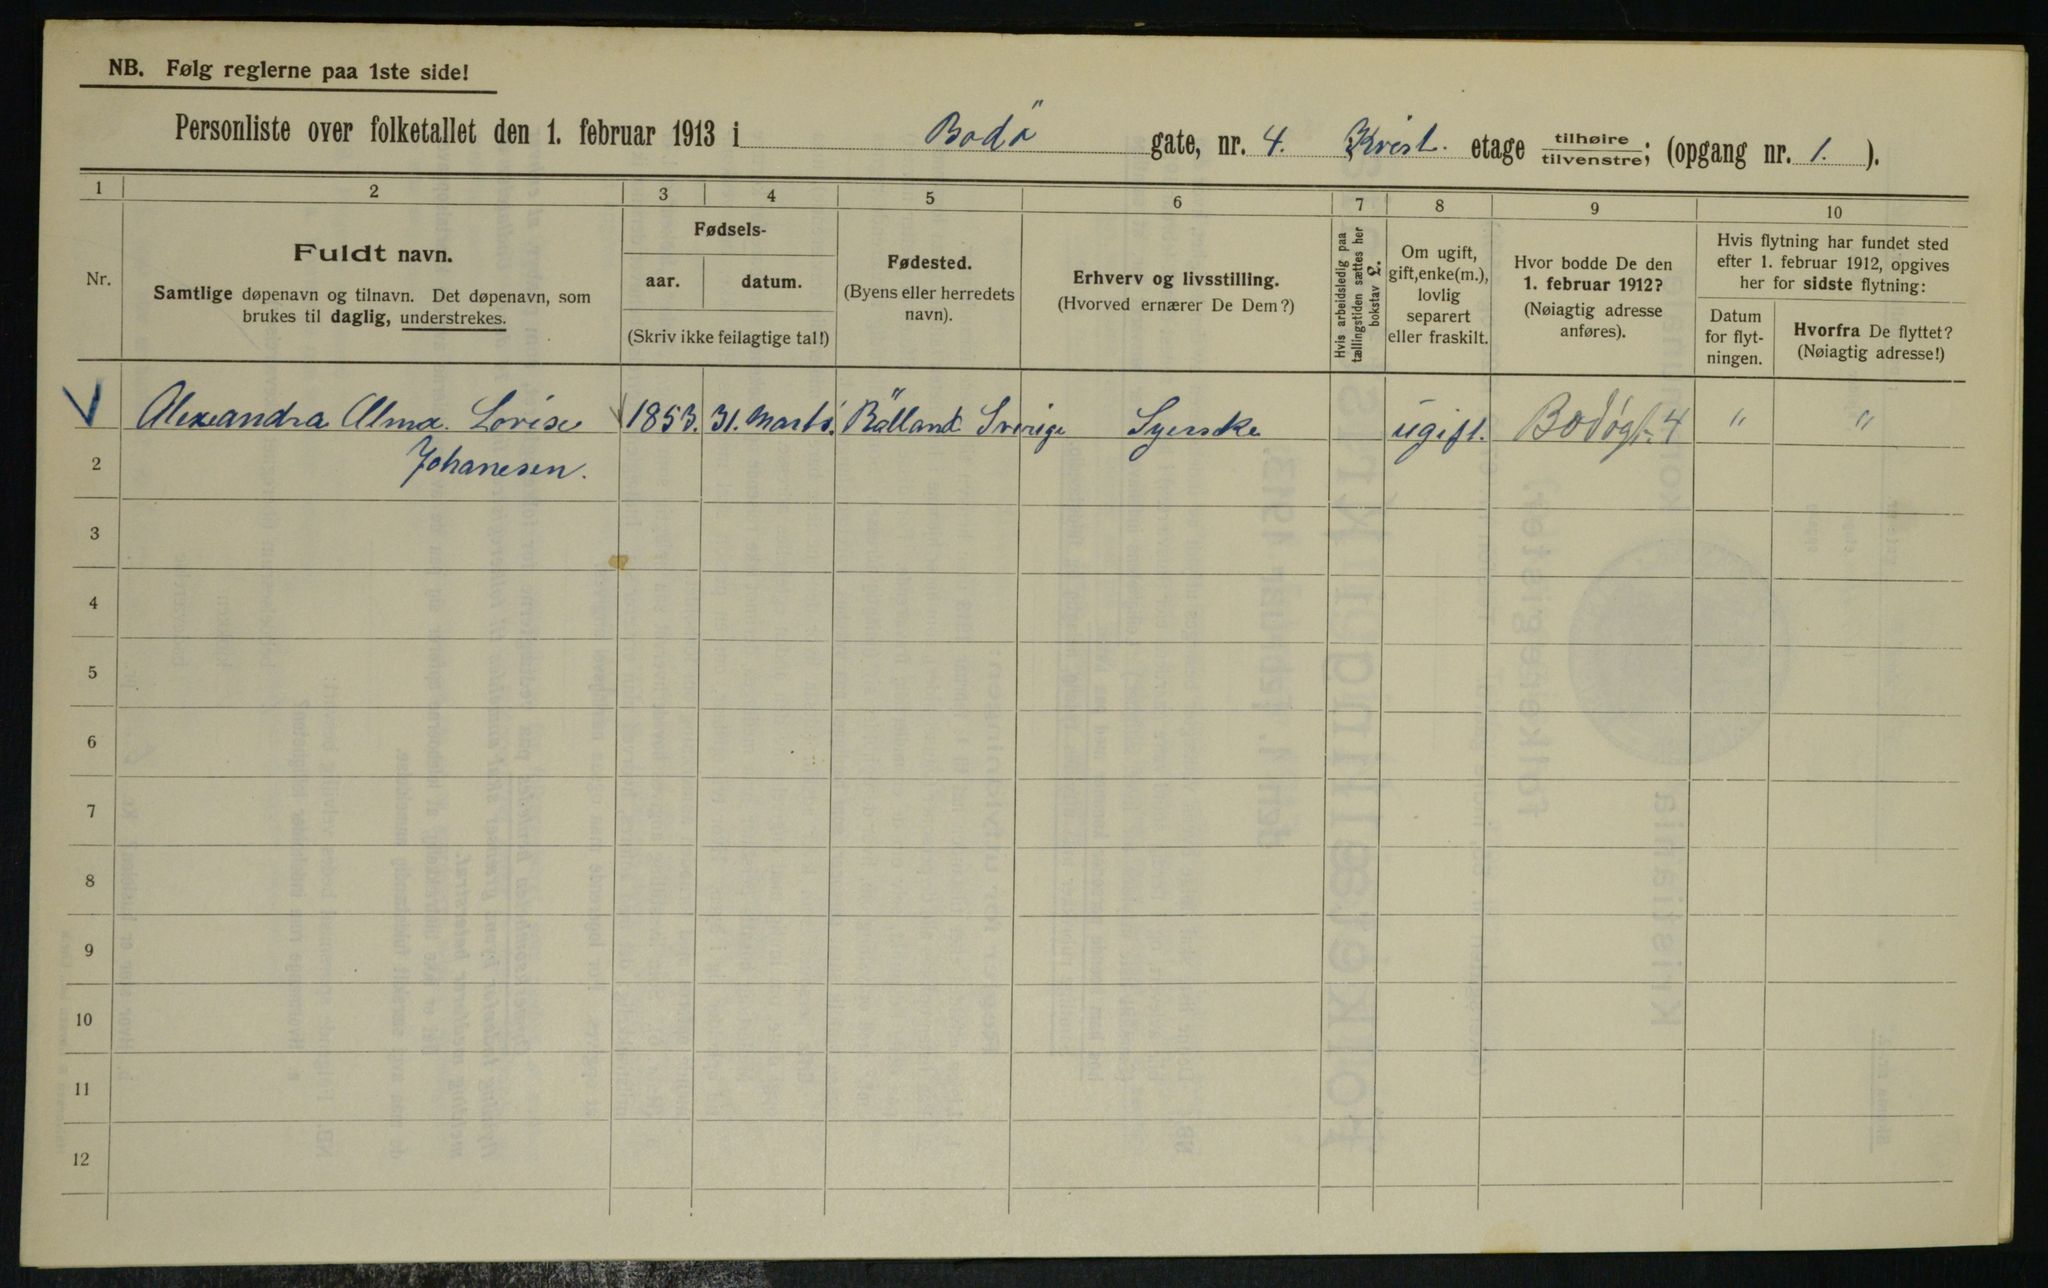 NB. Følg reglerne paa 1ste side!
Personliste over folketallet den 1. februar 1913 i Bodö gate, nr. 4. Kvist. etage tilhøire tilvenstre; (opgang nr. 1. ).
1 2 3 4 5 6 7 8 9 10
Nr.
Fuldt navn.
Samtlige døpenavn og tilnavn. Det døpenavn, som
brukes til daglig, understrekes.
Fødsels-
aar. datum.
(Skriv ikke feilagtige tal!)
Fødested.
(Byens eller herredets
navn).
Erhverv og livsstilling.
(Hvorved ernærer De Dem?)
Hvis arbeidsledig paa
tællingstiden sættes her
bokstav L.
Om ugift,
gift, enke(m.),
lovlig
separert
eller fraskilt.
Hvor bodde De den
1. februar 1912?
(Nøiagtig adresse
anføres).
Hvis flytning har fundet sted
efter 1. februar 1912, opgives
her for sidste flytning:
Datum
for flyt-
ningen.
Hvorfra De flyttet?
(Nøiagtig adresse!)
Alexandra Alma Lovise 1853. 31. Marts. Bälland Sverige Syerske ugift. Bodøgt. 4 " "
2 Johanesen.
3
4
5
6
7
8
9
10
11
12